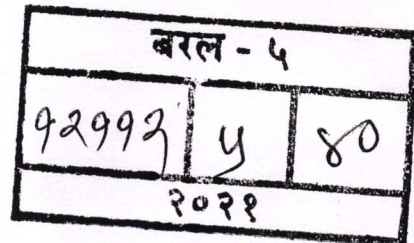 बरल - ५
१२११२ ५ ४०
२०२१